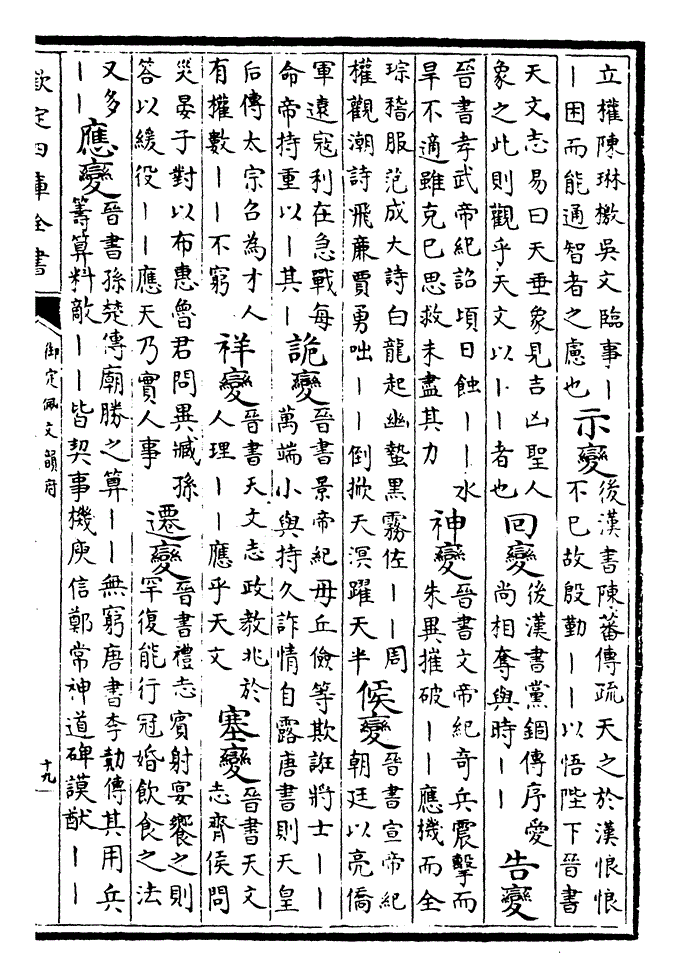 立權陳琳檄吳文臨事丨
丨困而能通智者之慮也
示變
後漢書陳蕃傳疏天之於漢悢悢
不已故殷勤丨丨以悟陛下晉書
天文志易曰天垂象見吉凶聖人
象之此則觀乎天文以丨丨者也
回變
後漢書黨錮傳序愛
尚相奪與時丨丨
告變
晉書孝武帝紀詔頃日蝕丨丨水
旱不適雖克己思救未盡其力
神變
晉書文帝紀奇兵震擊而
朱異摧破丨丨應機而全
琮稽服范成大詩白龍起幽蟄黑霧佐丨丨周
權觀潮詩飛廉賈勇咄丨丨倒掀天溟躍天半
候變
晉書宣帝紀
朝廷以亮僑
軍遠寇利在急戰每
命帝持重以丨其丨
詭變
晉書景帝紀毋丘儉等欺誑將士丨丨
萬端小與持久詐情自露唐書則天皇
后傳太宗召為才人
有權數丨丨不窮
祥變
晉書天文志政教兆於
人理丨丨應乎天文
塞變
晉書天文
志齊侯問
災晏子對以布惠魯君問異臧孫
答以緩役丨丨應天乃實人事
遷變
晉書禮志賓射宴饗之則
罕復能行冠婚飲食之法
又多
丨丨
應變
晉書孫楚傳廟勝之算丨丨無窮唐書李勣傳其用兵
籌算料敵丨丨皆契事機庾信鄭常神道碑謨猷丨丨
欽定四庫全書
御定佩文韻府
十九